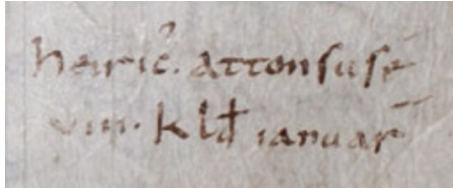 heiric̓. attonsusē
viii. kld̄ ianuar̄